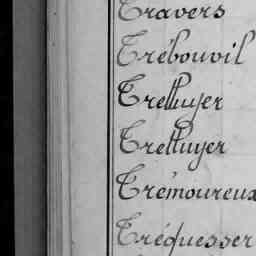 Travers
Trébouvil
Trelluyer
Trelluyer
Trémoureux
Tréquesser